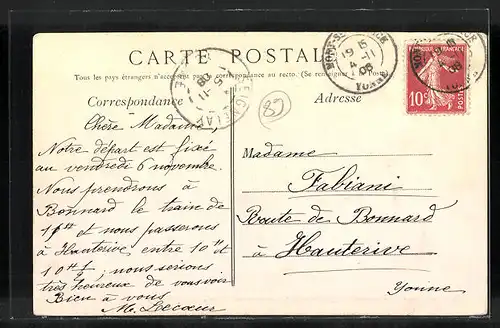 CARTE POSTALE
Tous les pays étrangers n'acceptent pas la correspondance au recto. (Se renseigner à la Poste)
Correspondance
Adresse
RÉPUBLIQUE FRANÇAISE
10c
POSTES
19 15
4 11
08
YONNE
5 -11
08
89
Chère Madame,
Notre départ est fixé
au vendredi 6 novembre.
Nous prendrons à
Bonnard le train de
11h et nous passerons
à Hauterive entre 10h et
10h ½, nous serions
très heureux de vous voir
Bien à vous
M. Lecœur
Madame
Fabiani
Route de Bonnard
à Hauterive
Yonne